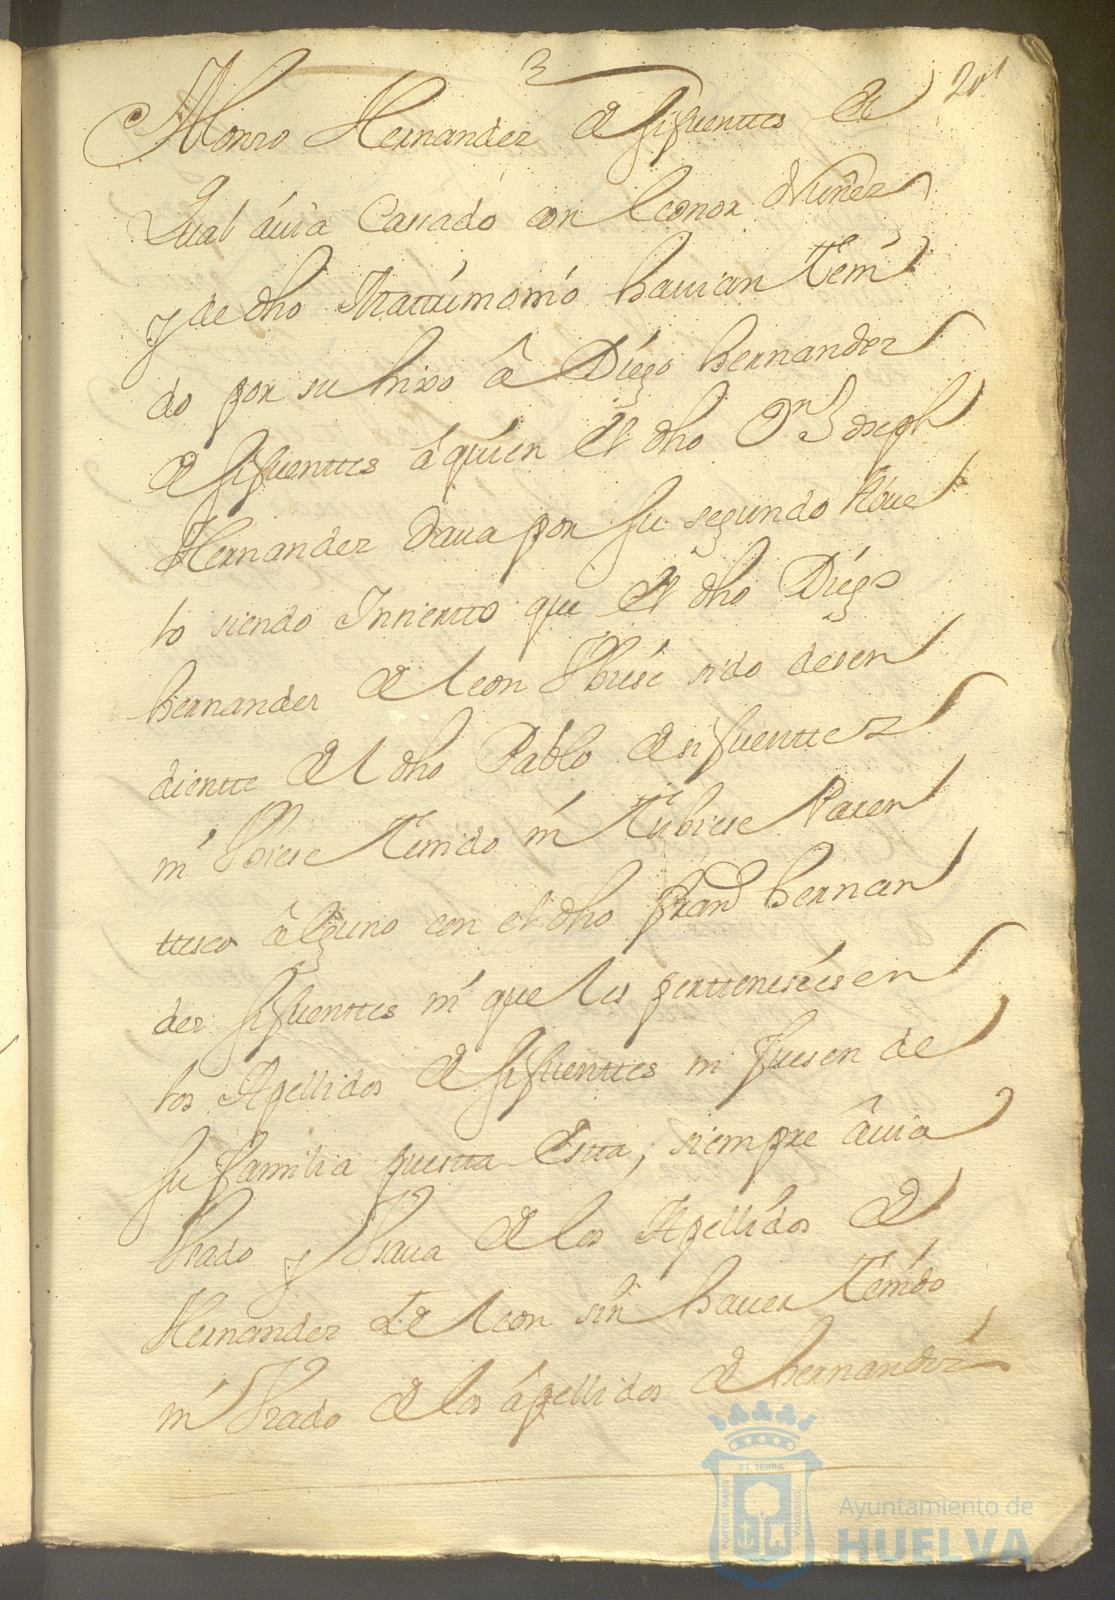 3
201
Alonso Hernandez de sifuenttes el
Qual avia Cassado con leonor Nuñez
y de dho Mattrimonio havian teni
do por su hixo â Diego hernandez
de sifuenttes â quien el dho Dn Joseph
Hernandez dava por su segundo Abue
lo siendo Inciertto que el dho Diego
hernandez de leon Vbiese sido desen
diente del dho Pablo de sifuenttez
ni Vbiese tenido ni tubiese Paren
ttesco âlguno con el dho Franco hernan
dez sifuenttes ni que les perttenesiesen
los Apellidos de sifuenttes ni fuesen de
su familia puestta Estta, siempre âvia
Vsado y Vsava de los Apellidos de
Hernandez de leon sin haver tenido
ni Vsado de los ápellidos de hernandez
PORTUS MARIS ET TERRÆ CUSTODIA
Ayuntamiento de
HUELVA